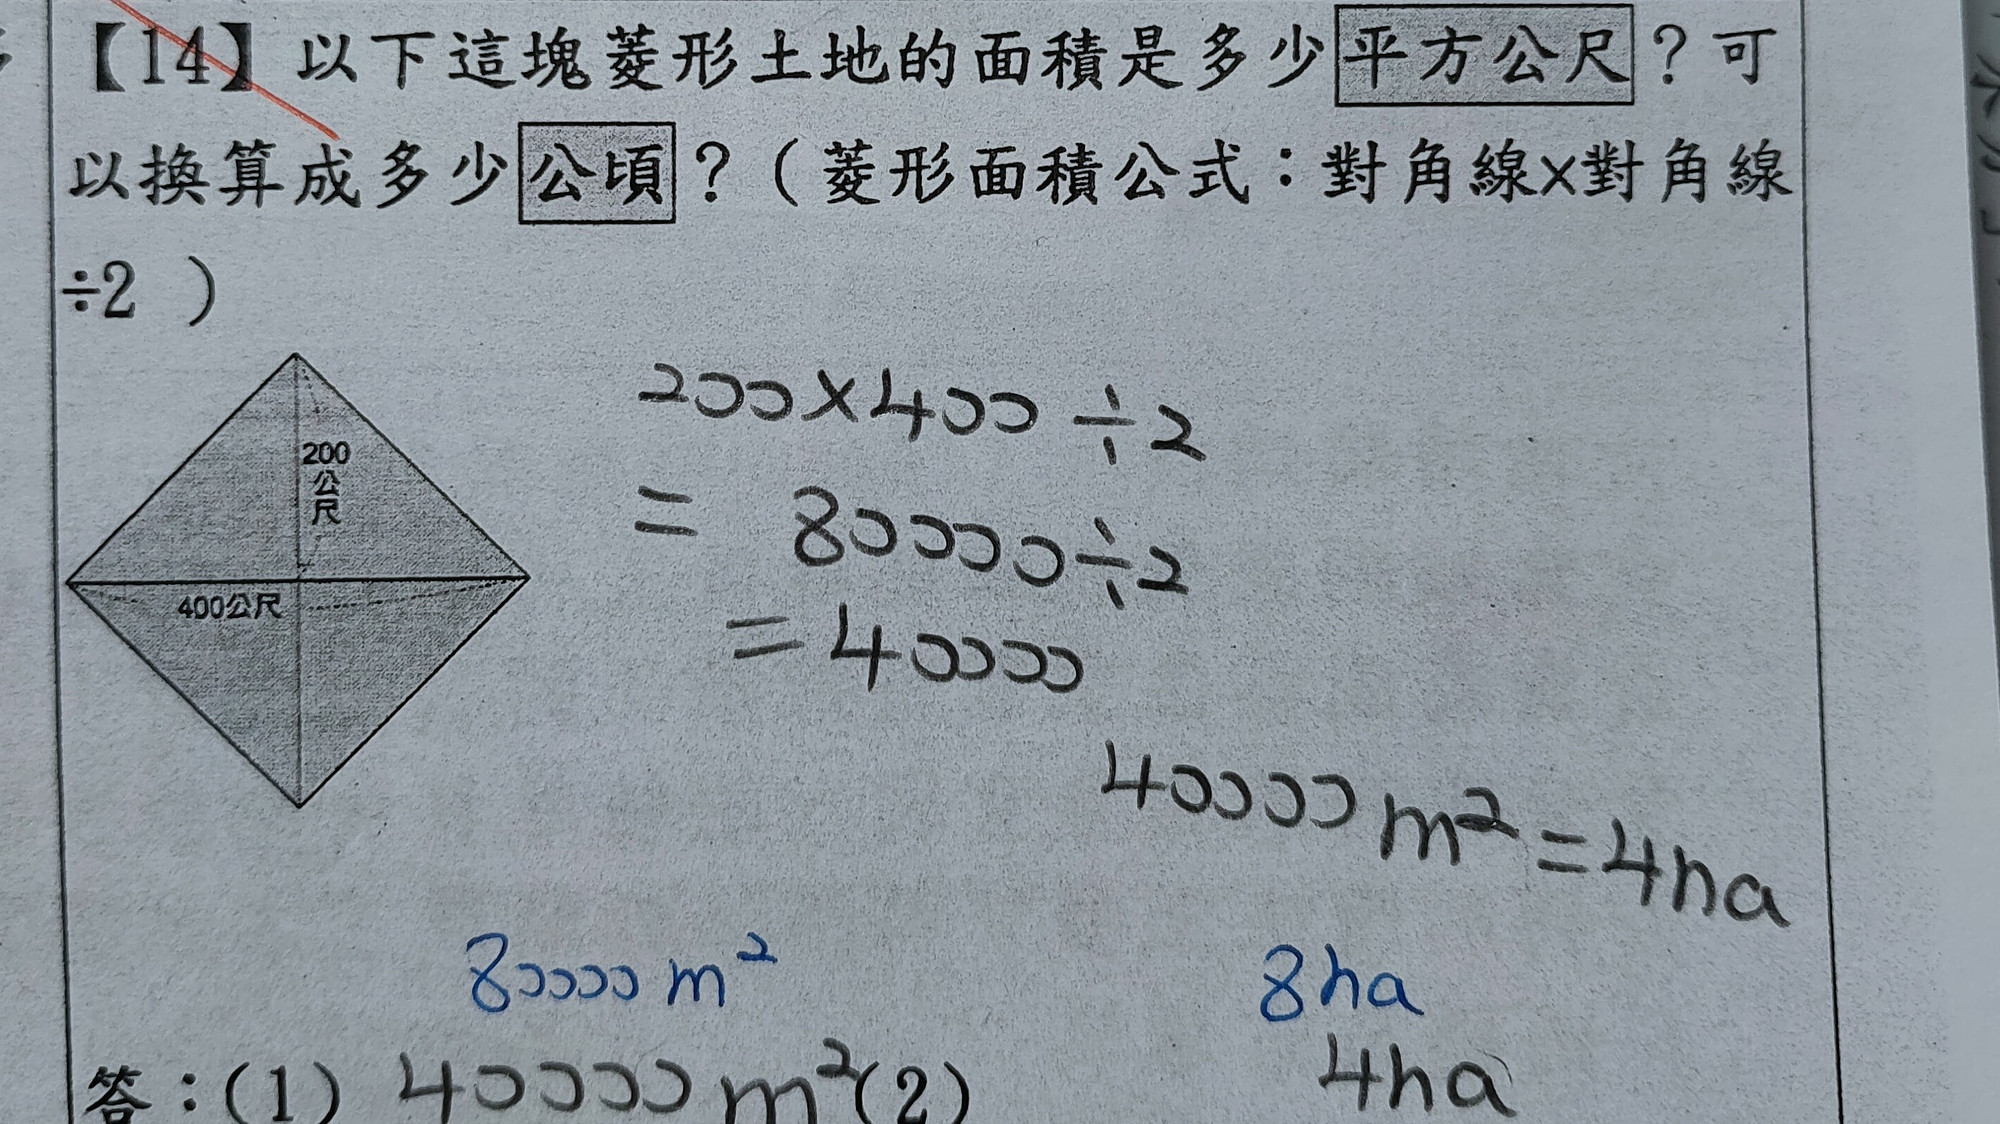 【14】以下這塊菱形土地的面積是多少平方公尺？可
以換算成多少公頃？（菱形面積公式：對角線x對角線
÷2 ）
200公尺
400公尺
200×400÷2
= 80000÷2
=40000
40000m²=4ha
80000m² 8ha
答：(1) 40000m²(2) 4ha